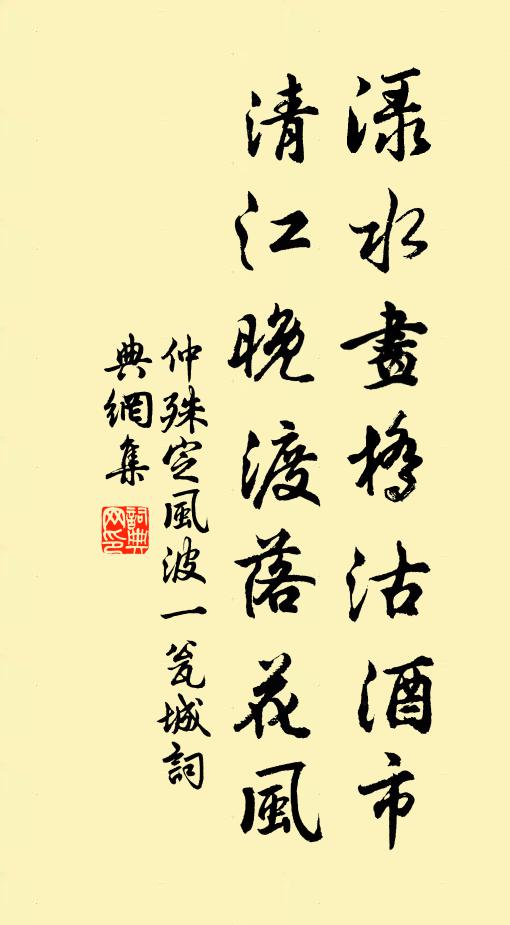 渌水畫橋沽酒市
清江晚渡落花風
仲殊定風波一瓮城詞
典網集
詞典網印